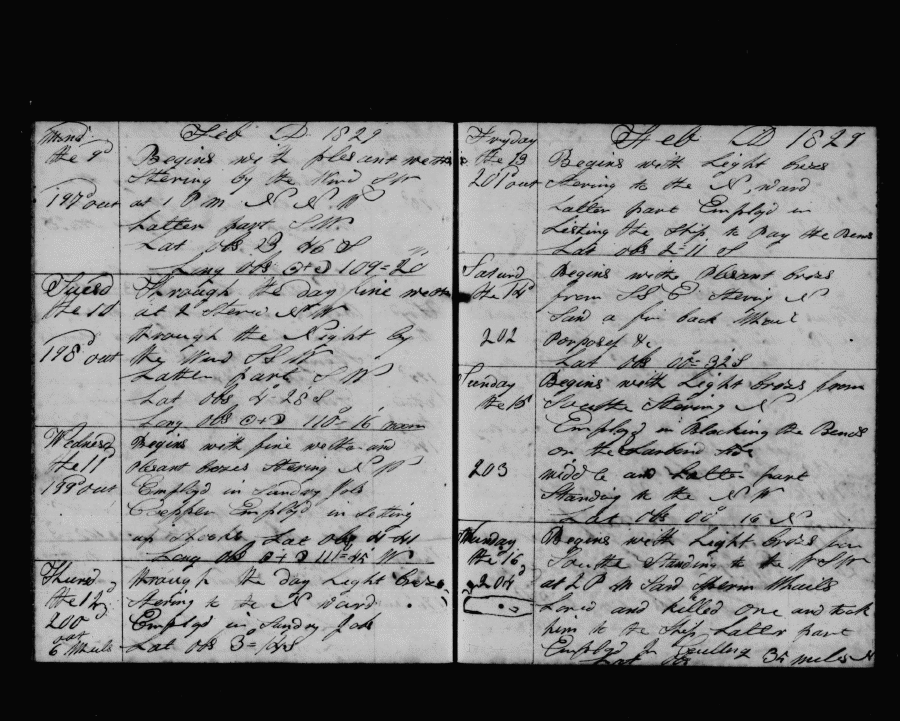 Feb D 1829
Mond
the 9d
197d out
Begins with plesant wethe
Stering by the Wind SW
at 1 P m N N W
Latter part S.W.
Lat obs 23 46 S
Long obs 109=20
Tuesd
the 10
198d out
Through the day fine wethe
at 2 Sterd N W
through the Night by
the Wind SSW
Latter part S W
Lat obs 28 S
Long obs 110=16
Wednesd
the 11
199d out
Begins with fine wether and
Plesant brezes Stering N W
Employd in Sundry Jobs
Cooper Employd in seting
up Shooks Lat obs 41
Long obs 111=45 W
Thursd
the 12
200d
out
through the day Light brezes
Stering to the N ward
Employd in Sundry Jobs
Lat obs 3= S
Feb AD 1829
Fryday
the 13
201d out
Begins with Light brezes
Stering to the N, ward
Latter part Employd in
Listing the Ship to Pay the Bends
Lat obs 2=11 S
Saturd
the 14d
202
Begins withe Plesant brezes
from SSE Stering N
Saw a fin back Whale
Porposes &c
Lat obs 00=32S
Sunday
the 15
203
Begins with Light brezes from
Southe Stering N
Employd in Blacking the Bends
on the Larbord Side
middle and Latter part
Standing to the N W
Lat obs 00° 16 N
Munday
the 16
204d
Begins with Light brezes from
Southe Standing to the
at 2 P M Saw Sperm Whails
Lored and killed one and took
him to the Ship Latter part
Employd in
Lat obs 35 miles N